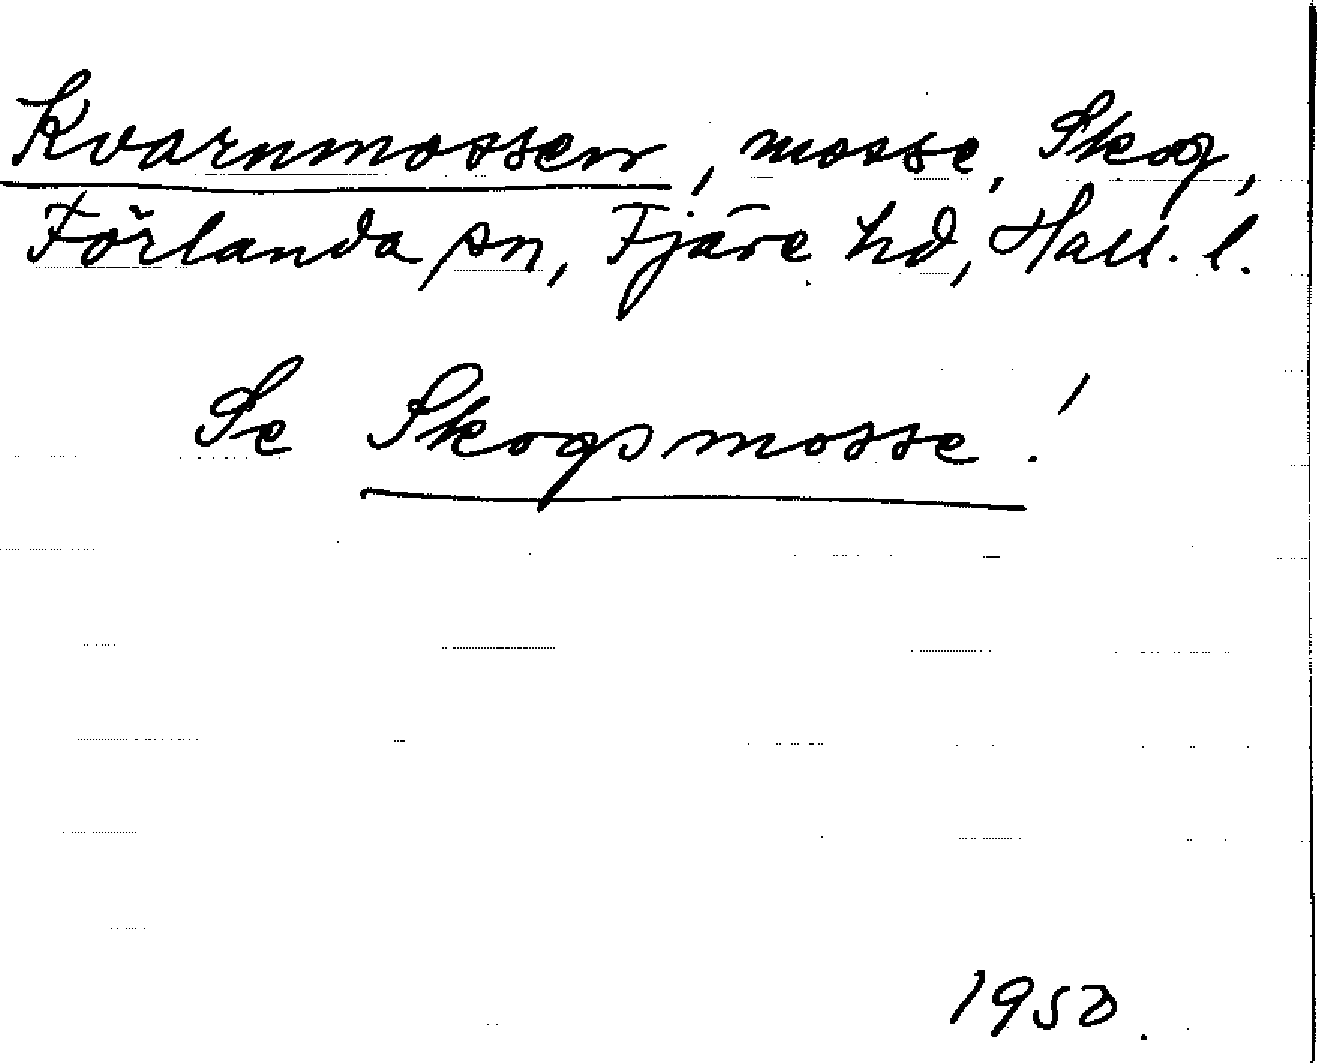 Kvarnmossen, mosse, Skog,
Förlanda sn, Fjäre hd, Hall. l.
Se Skogsmosse!
1950.